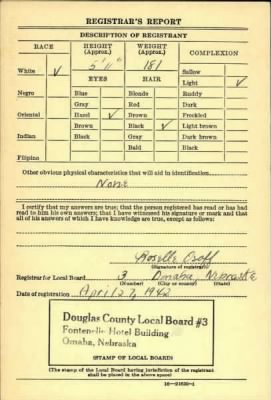 REGISTRAR'S REPORT
DESCRIPTION OF REGISTRANT
RACE
HEIGHT (Approx.)
WEIGHT (Approx.)
COMPLEXION
White ✓
5' 11"
181
Sallow
Light ✓
EYES
HAIR
Negro
Blue
Blonde
Ruddy
Gray
Red
Dark
Oriental
Hazel ✓
Brown
Freckled
Brown
Black ✓
Light brown
Indian
Black
Gray
Dark brown
Bald
Black
Filipino
Other obvious physical characteristics that will aid in identification
None
I certify that my answers are true; that the person registered has read or has had
read to him his own answers; that I have witnessed his signature or mark and that
all of his answers of which I have knowledge are true, except as follows:
Roselle
(Signature of registrar)
Registrar for Local Board 3 Omaha, Nebraska
(Number) (City or county) (State)
Date of registration April 27, 1942
Douglas County Local Board #3
Fontenelle Hotel Building
Omaha, Nebraska
(STAMP OF LOCAL BOARD)
(The stamp of the Local Board having jurisdiction of the registrant
shall be placed in the above space)
16—21630-1